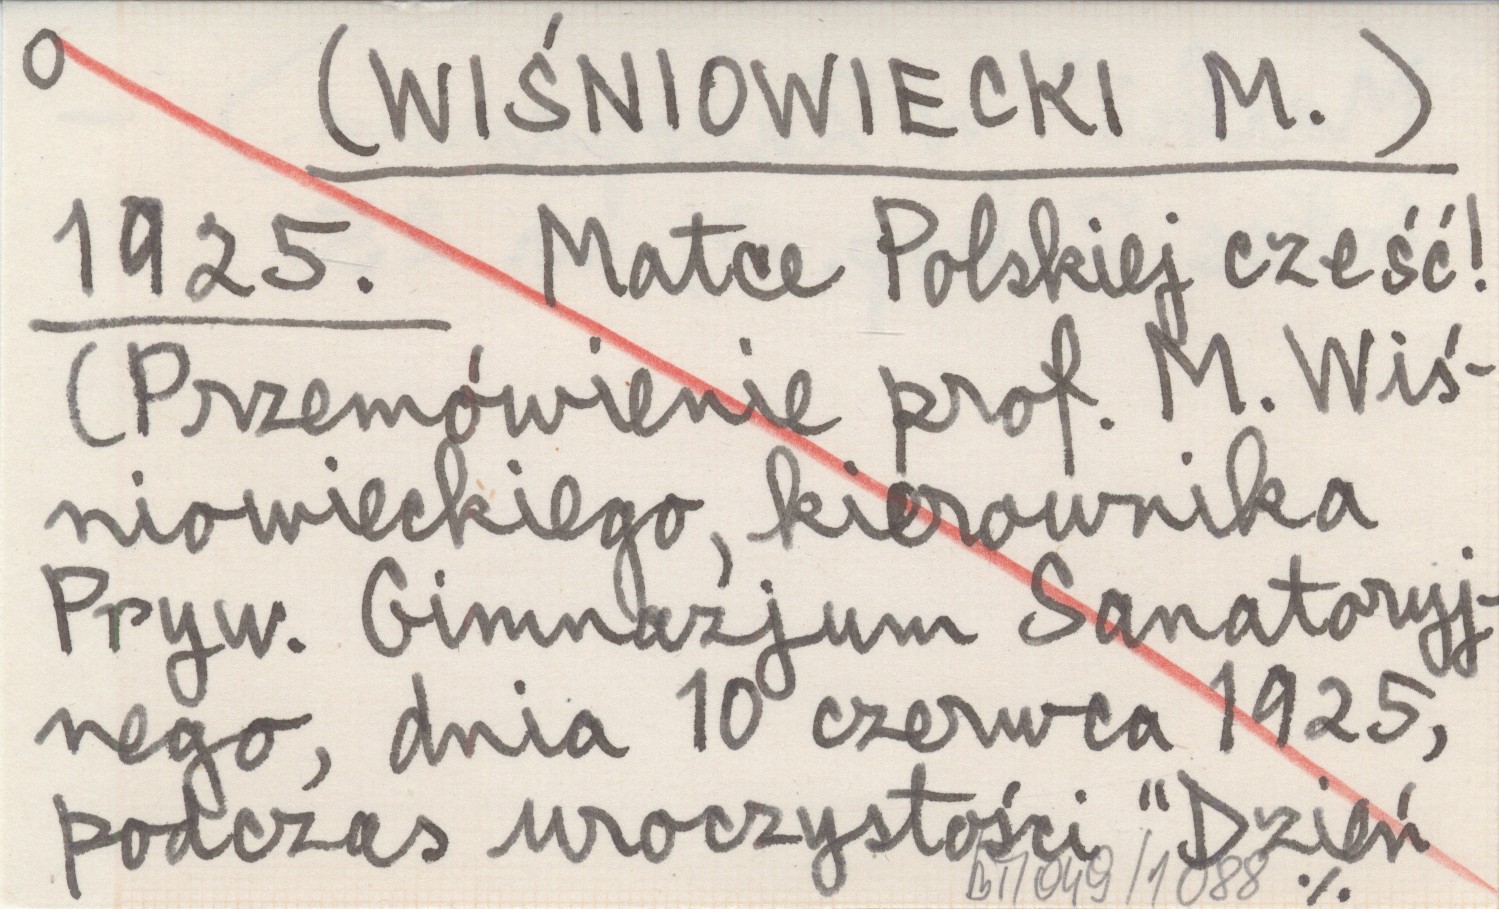 O (WIŚNIOWIECKI M.)
1925. Matce Polskiej cześć!
(Przemówienie prof. M. Wiś-
niowieckiego, kierownika
Pryw. Gimnazjum Sanatoryj-
nego, dnia 10 czerwca 1925,
podczas uroczystości "Dzień
049/1088 ·/.